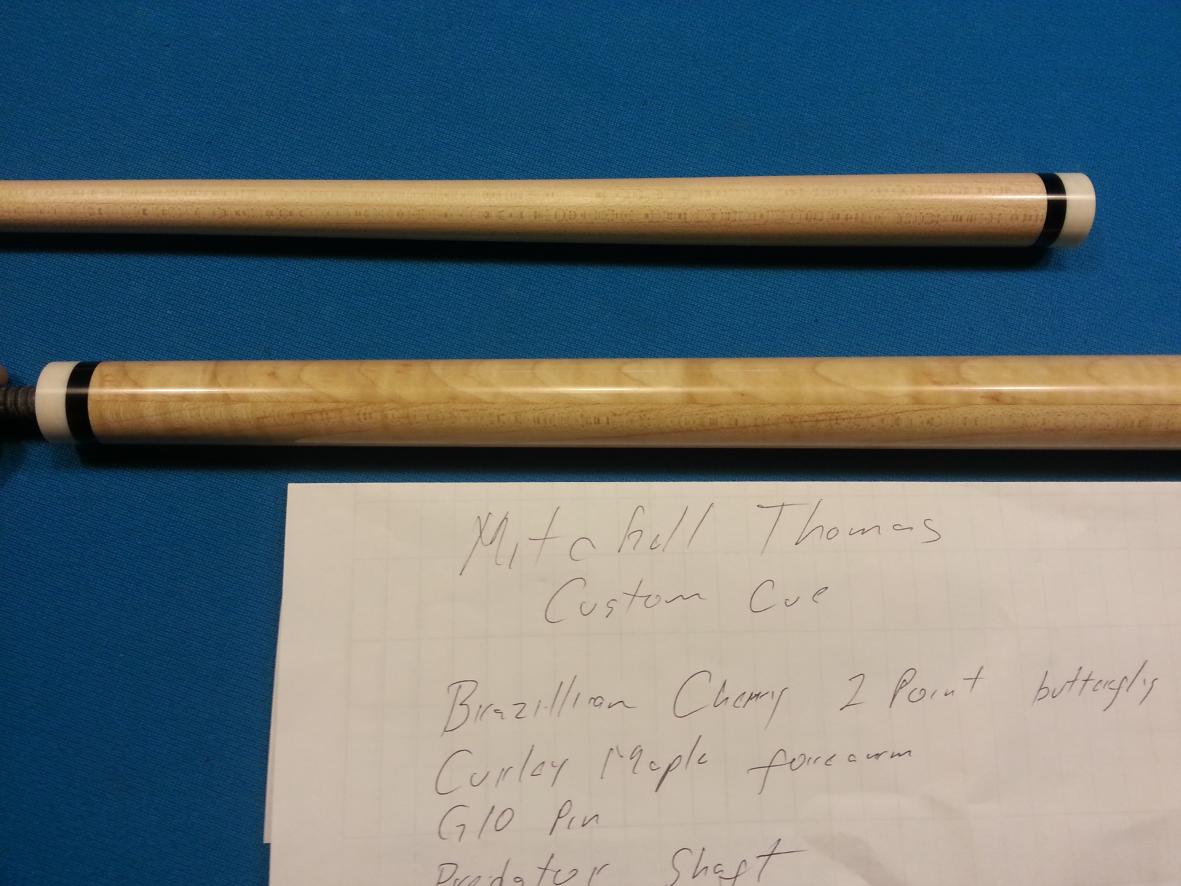 Mitchell Thomas
Custom Cue
Brazillian Cherry 2 Point butterfly
Curley Maple forearm
G10 Pin
Predator Shaft